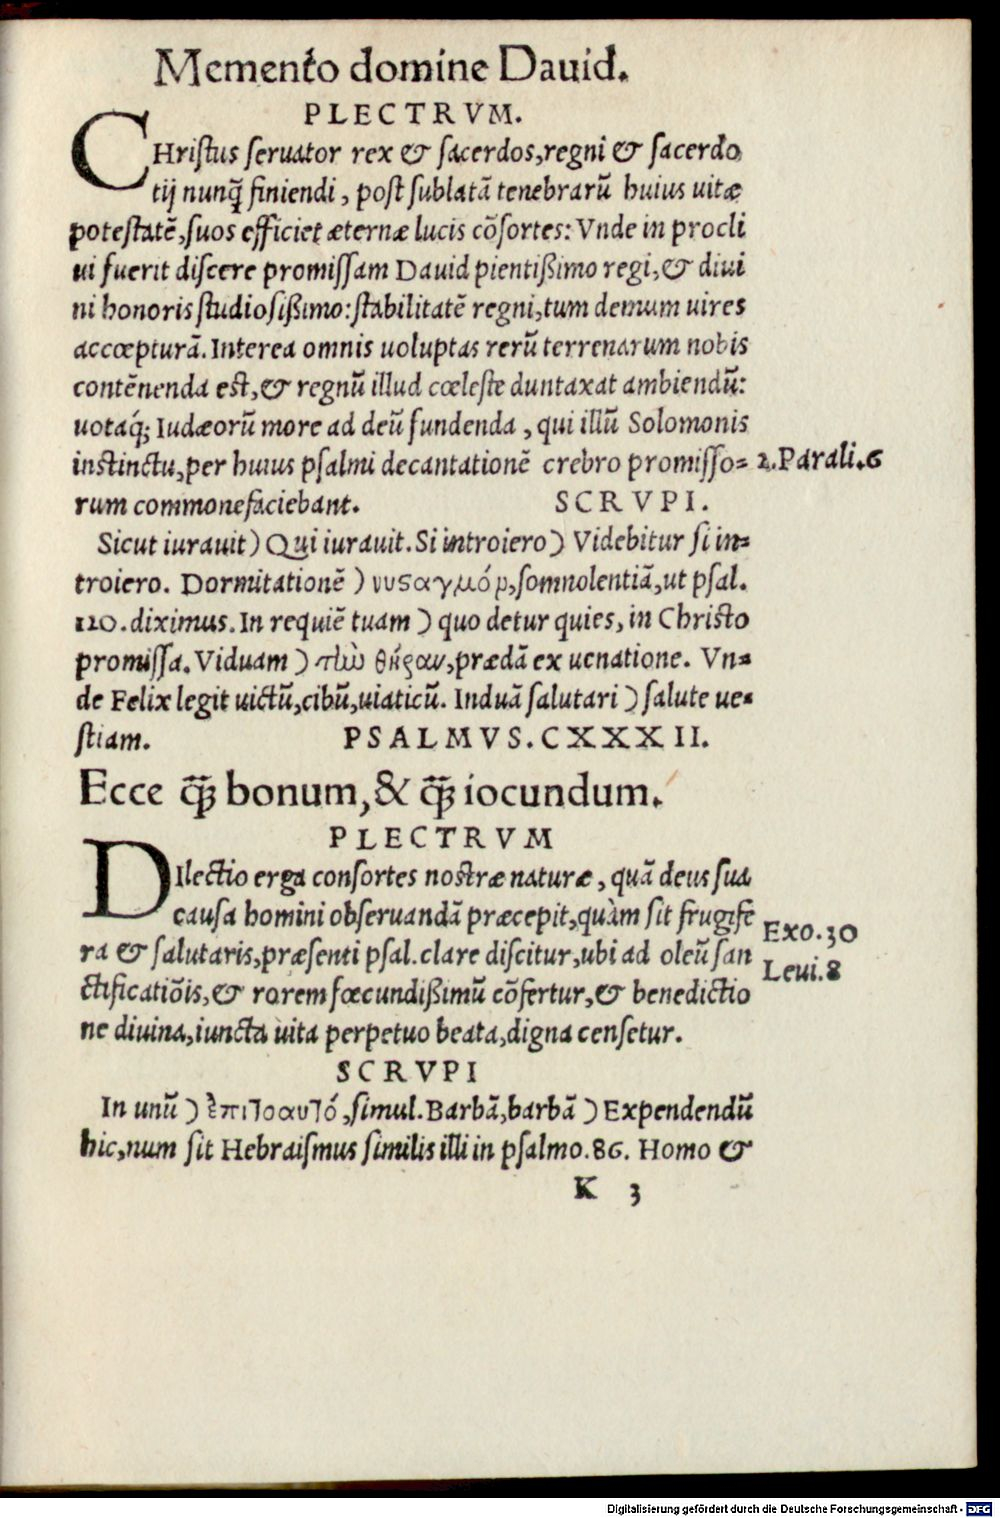 Memento domine Dauid.
PLECTRVM.
CHriſtus ſeruator rex & ſacerdos, regni & ſacerdo
tij nunq̃ finiendi, poſt ſublatã tenebrarũ huius uitæ
poteſtatẽ, ſuos efficiet æternæ lucis cõſortes: Vnde in procli
ui fuerit diſcere promiſſam Dauid pientißimo regi, & diui
ni honoris ſtudioſißimo: ſtabilitatẽ regni, tum demum uires
accœpturã. Interea omnis uoluptas rerũ terrenarum nobis
contẽnenda eſt, & regnũ illud cœleſte duntaxat ambiendũ:
uotaq́; Iudæorũ more ad deũ fundenda, qui illũ Solomonis
inſtinctu, per huius pſalmi decantationẽ crebro promiſſo= 2. Parali. 6
rum commonefaciebant. SCRVPI.
Sicut iurauit) Qui iurauit. Si introiero) Videbitur ſi in=
troiero. Dormitationẽ) νυςαγμόν, ſomnolentiã, ut pſal.
120. diximus. In requiẽ tuam) quo detur quies, in Chriſto
promiſſa. Viduam) τὼ θήραν, prædã ex uenatione. Vn=
de Felix legit uictũ, cibũ, uiaticũ. Induã ſalutari) ſalute ue=
ſtiam. PSALMVS. CXXXII.
Ecce q̃ꝫ bonum, & q̃ꝫ iocundum.
PLECTRVM
DIlectio erga conſortes noſtræ naturæ, quã deus ſua
cauſa homini obſeruandã præcepit, quàm ſit frugife
ra & ſalutaris, præſenti pſal. clare diſcitur, ubi ad oleũ ſan
ctificatiõis, & rorem fœcundißimũ cõfertur, & benedictio
ne diuina, iuncta uita perpetuo beata, digna cenſetur.
Exo. 30
Leui. 8
SCRVPI
In unũ) ἐπιτοαυτό, ſimul. Barbã, barbã) Expendendũ
hic, num ſit Hebraiſmus ſimilis illi in pſalmo. 86. Homo &
K 3
Digitalisierung gefördert durch die Deutsche Forschungsgemeinschaft - DFG